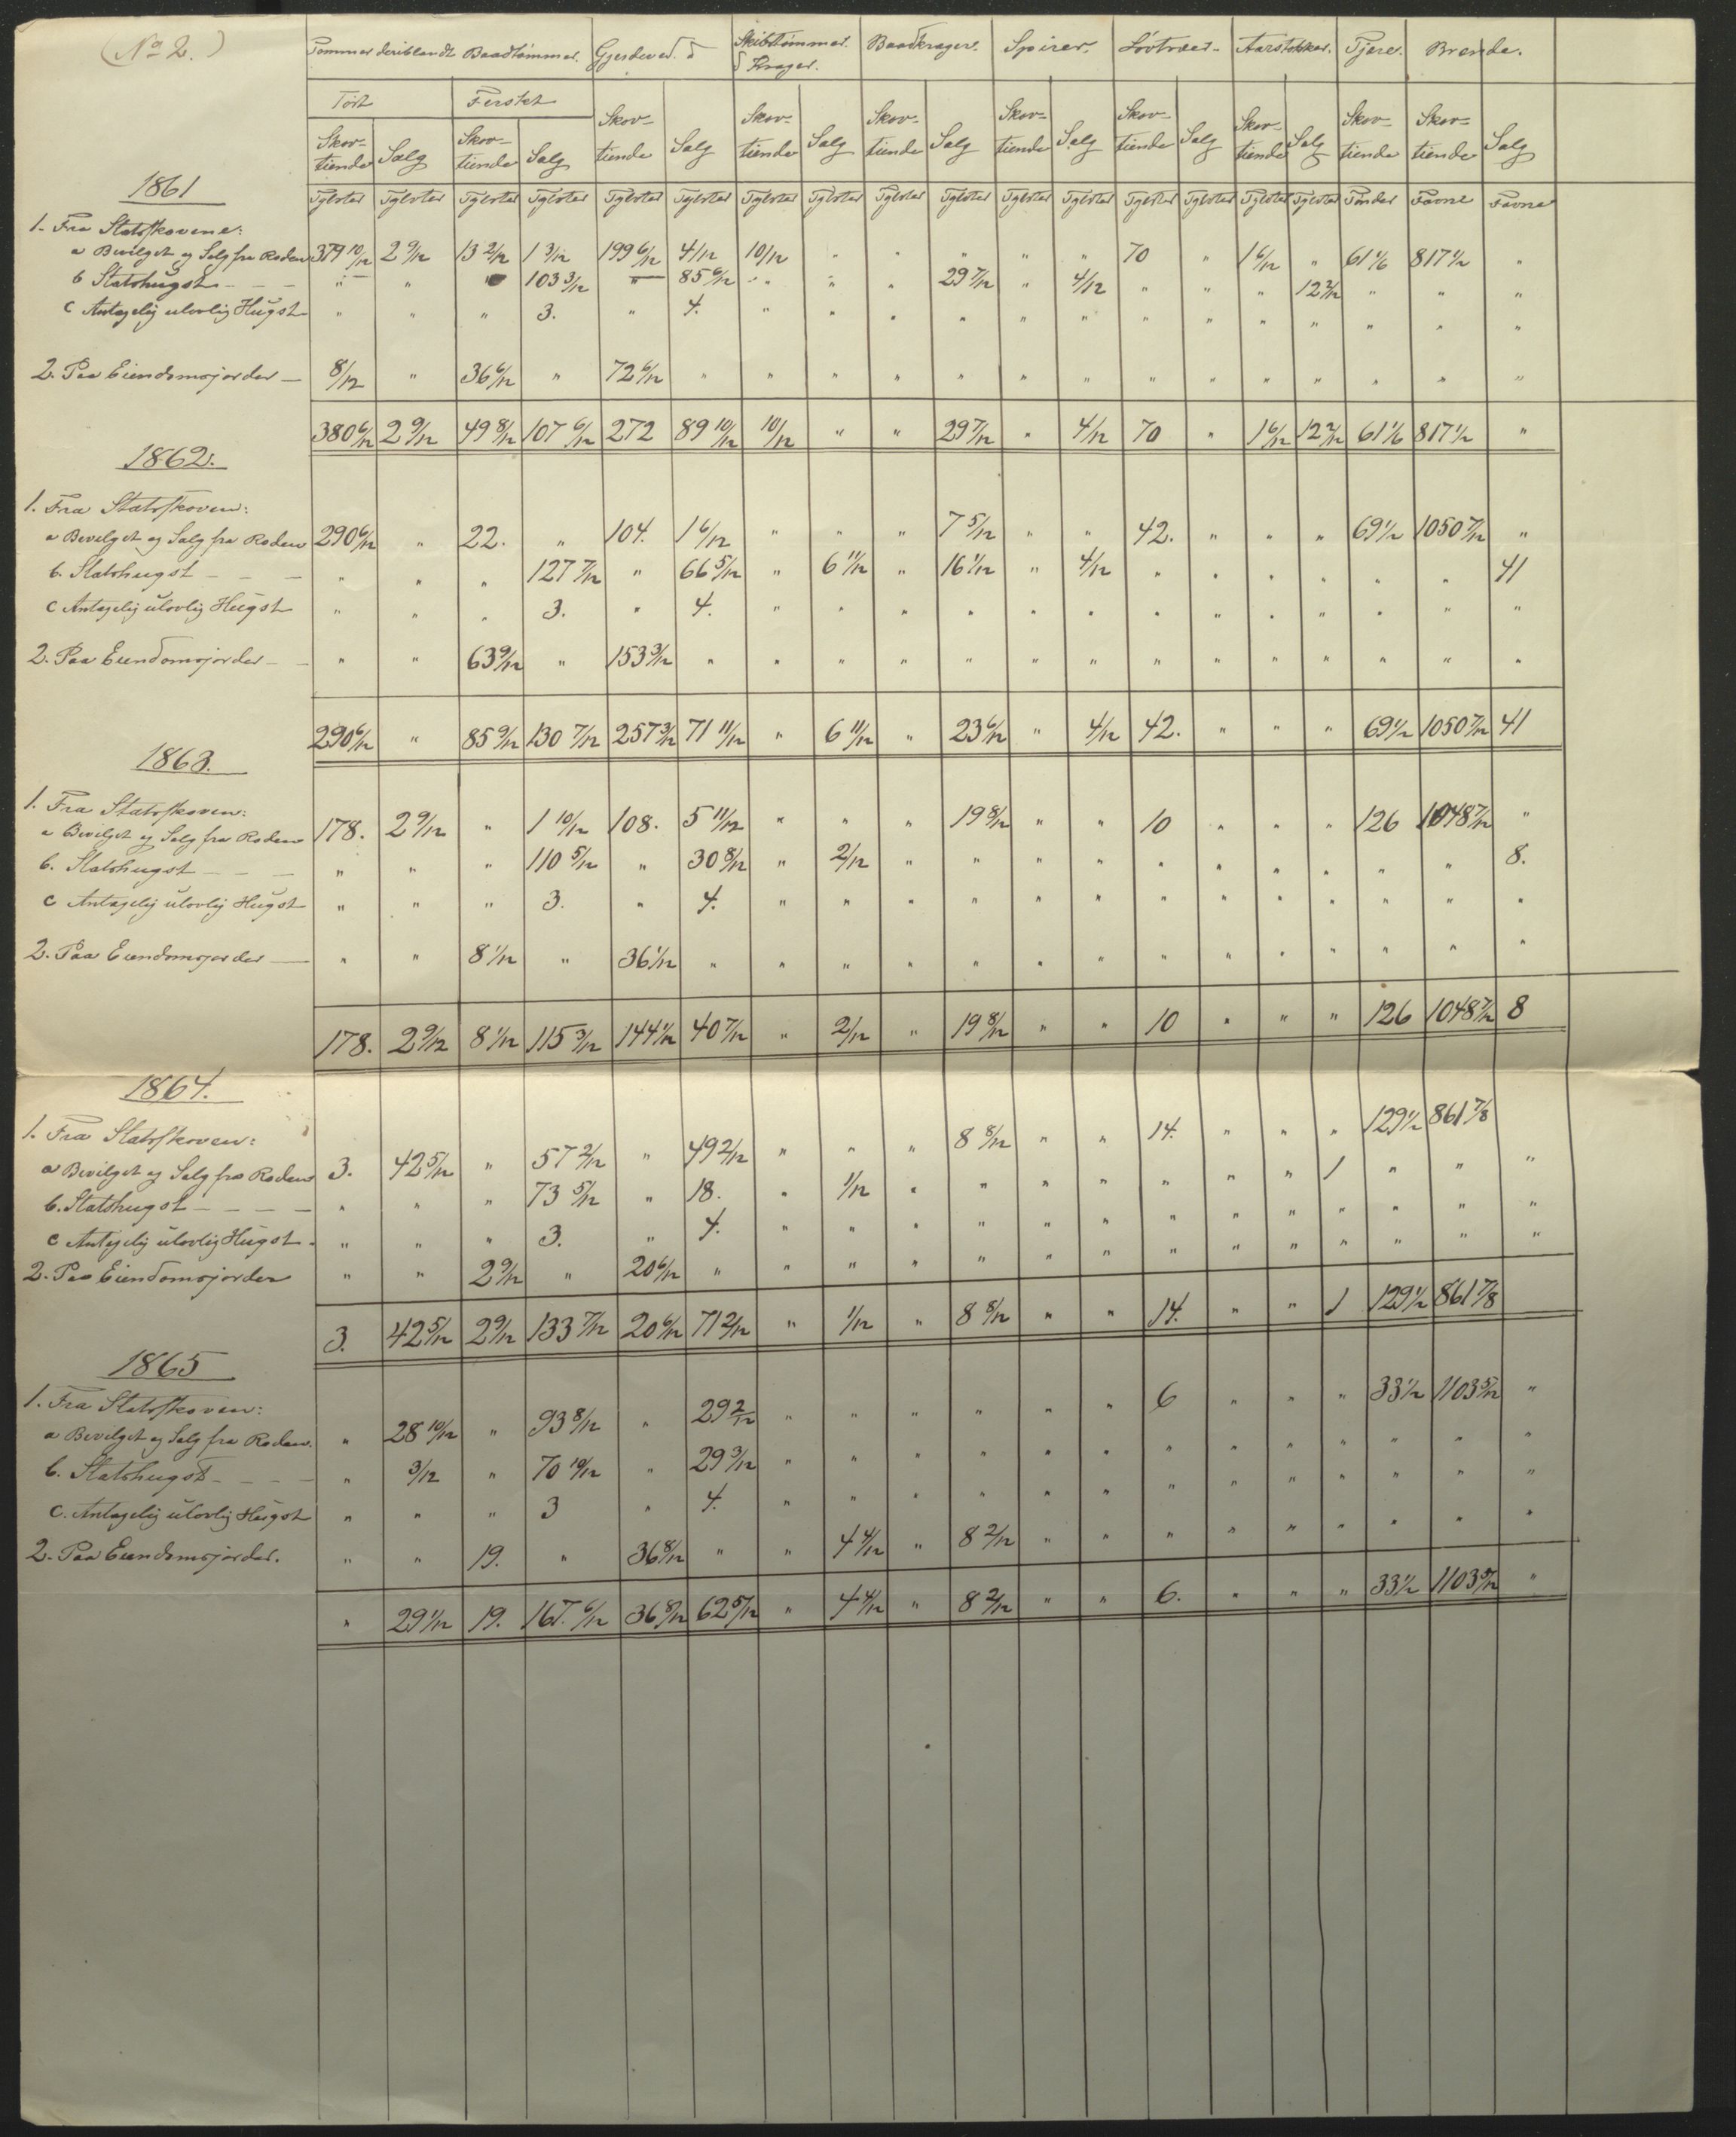 (No 2.)
Tømmer deriblandt Baadtømmer. Gjerdeved. Skibstømmer & Krager. Baadkrager. Spirer. Løvtræer. Aarstokker. Tjære. Brænde.
Tørt Ferskt
Skov-tiende Salg Skov-tiende Salg Skov-tiende Salg Skov-tiende Salg Skov-tiende Salg Skov-tiende Salg Skov-tiende Salg Skov-tiende Salg Skov-tiende Skov-tiende Salg
Tylvter Tylvter Tylvter Tylvter Tylvter Tylvter Tylvter Tylvter Tylvter Tylvter Tylvter Tylvter Tylvter Tylvter Tylvter Tylvter Tønder Favne Favne
1861
1. Fra Statsskovene:
a Bevilget og Salg fra Roden 379 10/12 2 9/12 13 2/12 1 3/12 199 6/12 4/12 10/12 " " " " " 70 " 1 6/12 " 61 1/6 817 1/2 "
b Statshugst - - - " " " 103 3/12 " 85 6/12 " " " 29 7/12 " 4/12 " " " 12 2/12 " " "
c Antagelig ulovlig Hugst " " " 3. " 4. " " " " " " " " " " " " "
2. Paa Eiendomsjorder - 8/12 " 36 6/12 " 72 6/12 " " " " " " " " " " " " " "
380 6/12 2 9/12 49 8/12 107 6/12 272 89 10/12 10/12 " " 29 7/12 " 4/12 70 " 1 6/12 12 2/12 61 1/6 817 1/2 "
1862.
1. Fra Statsskoven:
a Bevilget og Salg fra Roden 290 6/12 " 22. " 104. 1 6/12 " " " 7 5/12 " " 42. " " " 69 1/2 1050 7/12 "
b. Statshugst - - - " " " 127 7/12 " 66 5/12 " 6 11/12 " 16 1/12 " 4/12 " " " " " " 41
c Antagelig ulovlig Hugst " " " 3. " 4. " " " " " " " " " " " " "
2. Paa Eiendomsjorder - - " " 63 9/12 " 153 3/12 " " " " " " " " " " " " " "
290 6/12 " 85 9/12 130 7/12 257 3/12 71 11/12 " 6 11/12 " 23 6/12 " 4/12 42. " " " 69 1/2 1050 7/12 41
1863.
1. Fra Statsskoven:
a Bevilget og Salg fra Roden 178. 2 9/12 " 1 10/12 108. 5 11/12 " " " 19 8/12 " " 10 " " " 126 1048 7/12 "
b. Statshugst - - - " " " 110 5/12 " 30 8/12 " 2/12 " " " " " " " " " " 8.
c Antagelig ulovlig Hugst " " " 3. " 4. " " " " " " " " " " " " "
2. Paa Eiendomsjorder - " " 8 1/12 " 36 1/12 " " " " " " " " " " " " " "
178. 2 9/12 8 1/12 115 3/12 144 1/12 40 7/12 " 2/12 " 19 8/12 " " 10 " " " 126 1048 7/12 8
1864.
1. Fra Statsskoven:
a Bevilget og Salg fra Roden 3. 42 5/12 " 57 2/12 " 49 2/12 " " " 8 8/12 " " 14. " " " 129 1/2 861 7/8
b. Statshugst - - - - " " " 73 5/12 " 18. " 1/12 " " " " " " " 1 " " "
c Antagelig ulovlig Hugst " " " 3. " 4. " " " " " " " " " " " " "
2. Paa Eiendomsjorder " " 2 9/12 " 20 6/12 " " " " " " " " " " " " " "
3. 42 5/12 2 9/12 133 7/12 20 6/12 71 2/12 " 1/12 " 8 8/12 " " 14. " " 1 129 1/2 861 7/8
1865
1. Fra Statsskoven:
a Bevilget og Salg fra Roden. " 28 10/12 " 93 8/12 " 29 2/12 " " " " " " 6 " " " 33 1/2 1103 5/12 "
b. Statshugst - - - - " 3/12 " 70 10/12 " 29 3/12 " " " " " " " " " " " " "
c. Antagelig ulovlig Hugst " " " 3 " 4. " " " " " " " " " " " " "
2. Paa Eiendomsjorder. " " 19. " 36 8/12 " " 4 4/12 " 8 2/12 " " " " " " " " "
" 29 1/12 19. 167. 6/12 36 8/12 62 5/12 " 4 4/12 " 8 2/12 " " 6. " " " 33 1/2 1103 5/12 "